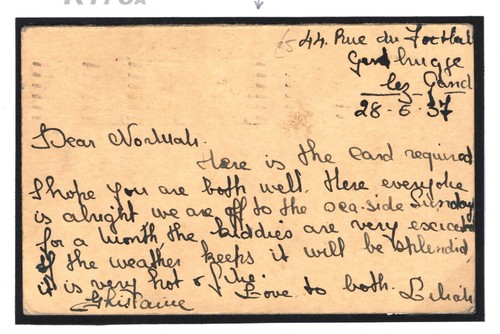 44. Rue du Football
Gendbrugge
lez Gand
28-6-37
Dear
Here is the card required
I hope you are both well. Here everyone
is alright we are off to the sea-side Sunday
for a month, the kiddies are very excited
if the weather keeps it will be splendid,
it is very hot & fine.
Love to both. Lilian
Ghislaine